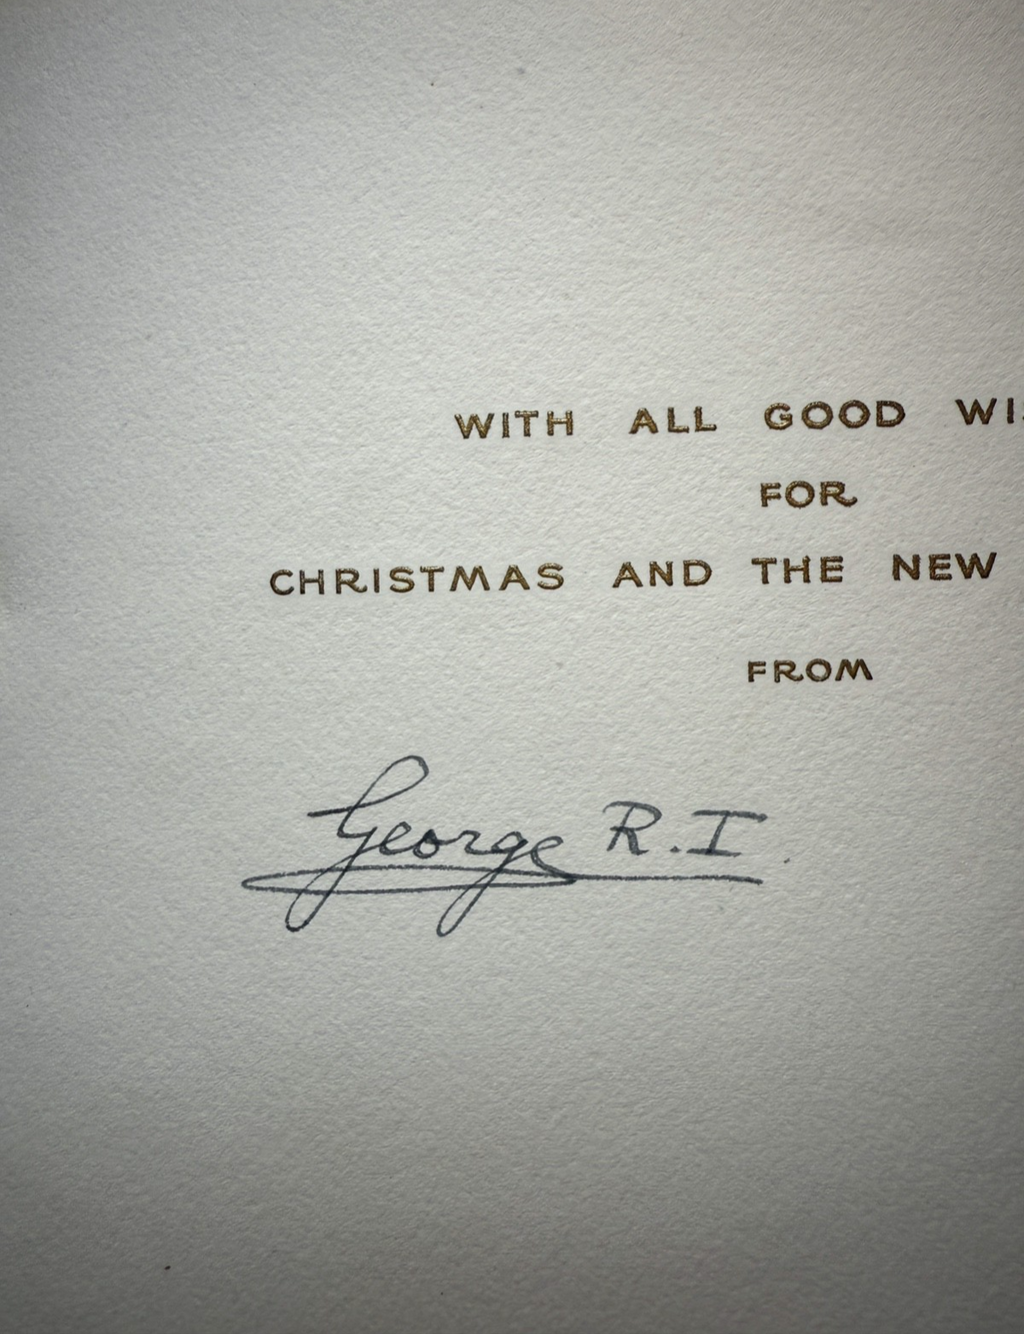 WITH ALL GOOD
FOR
CHRISTMAS AND THE NEW
FROM
George R.I.